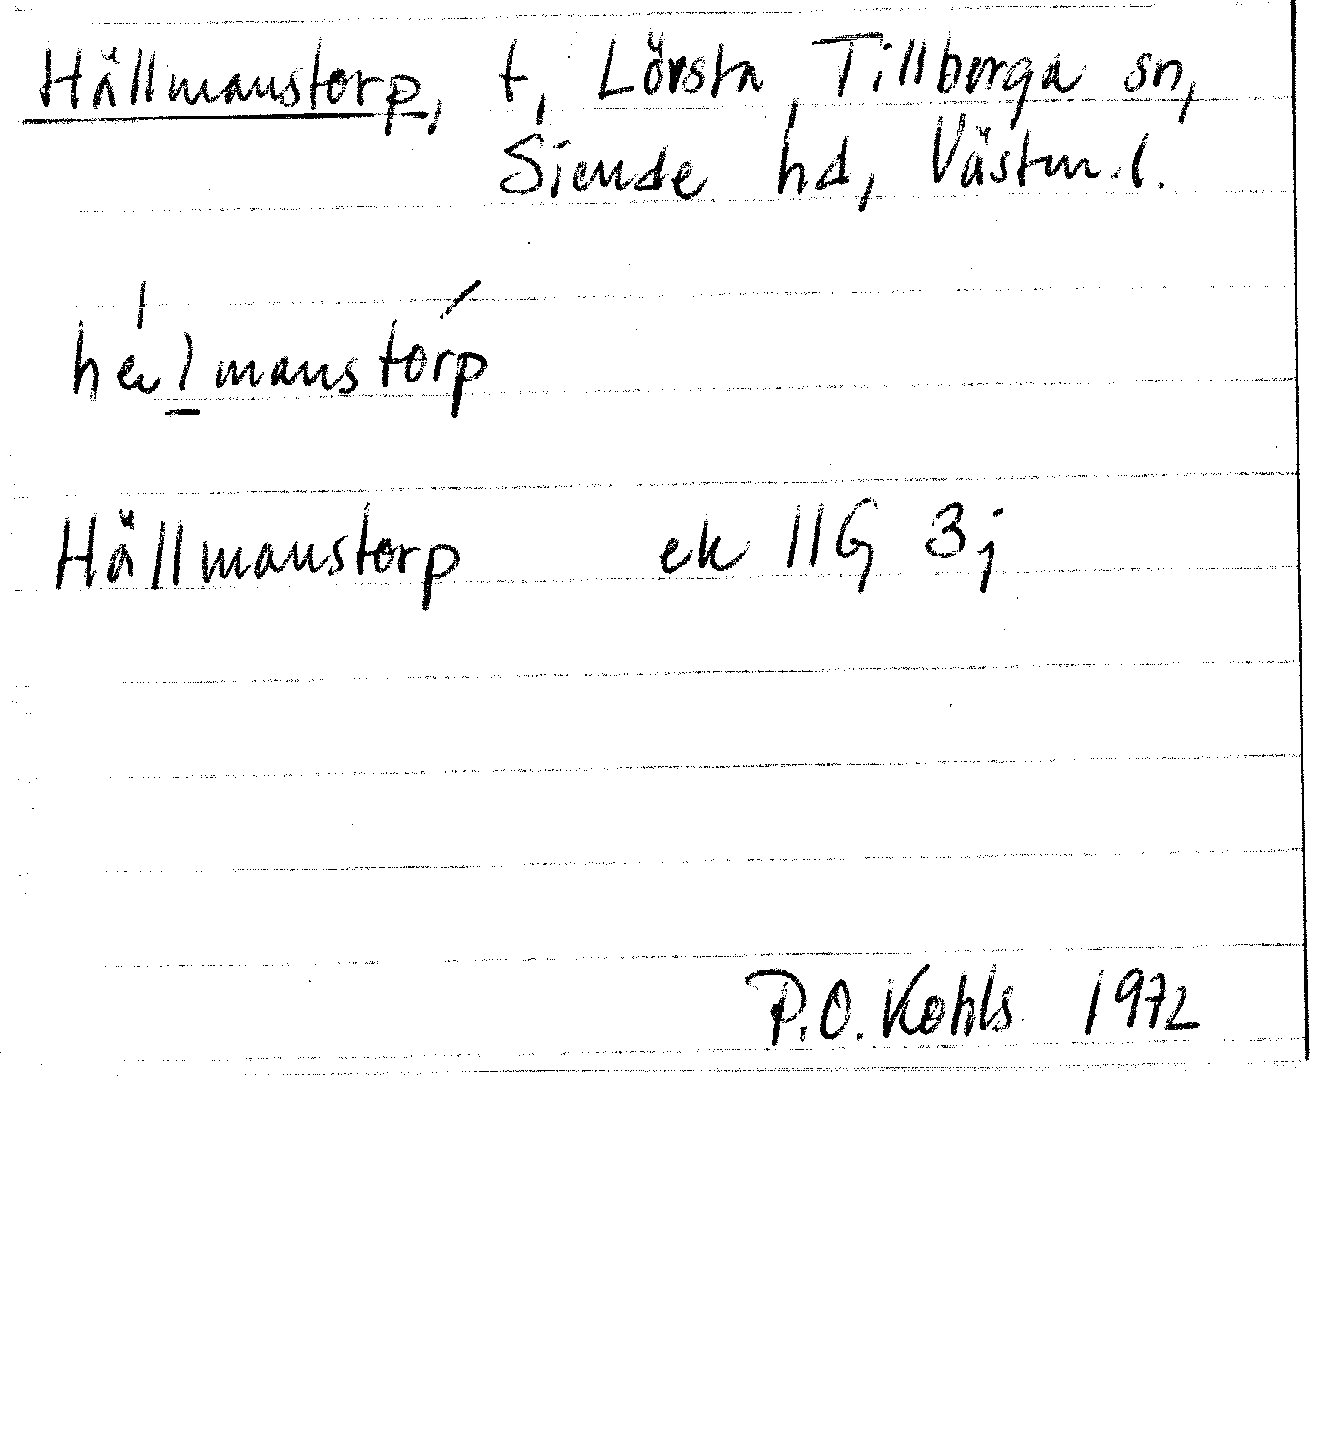 Hällmanstorp, t, Lörsta, Tillberga sn,
Siende hd, Västm.l.
Hällmanstorp ek 11G 3j
P.O. Kohls 1972